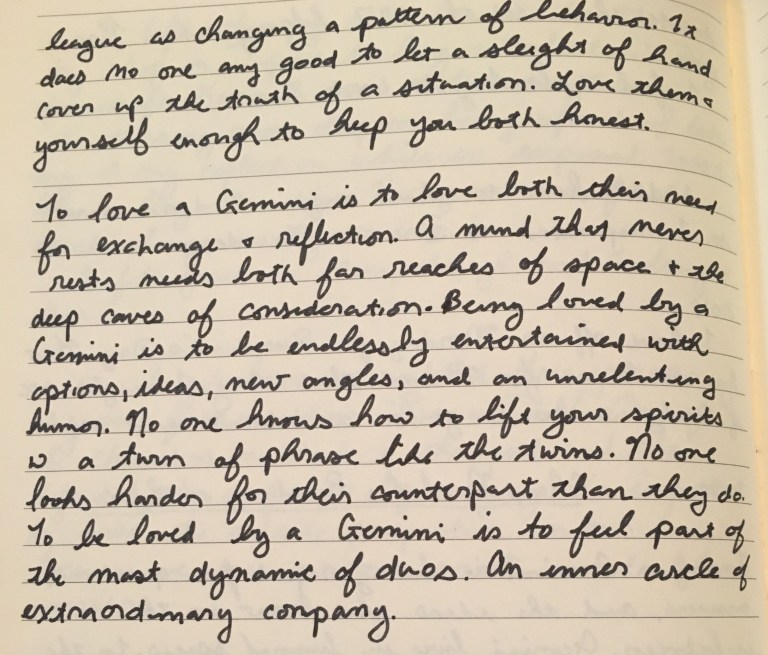 league as changing a pattern of behavior. It
does no one any good to let a sleight of hand
cover up the truth of a situation. Love them &
yourself enough to keep you both honest.
To love a Gemini is to love both their need
for exchange & reflection. A mind that never
rests needs both far reaches of space + the
deep caves of consideration. Being loved by a
Gemini is to be endlessly entertained with
options, ideas, new angles, and an unrelenting
humor. No one knows how to lift your spirits
w a turn of phrase like the twins. No one
looks harder for their counterpart than they do.
To be loved by a Gemini is to feel part of
the most dynamic of duos. An inner circle of
extraordinary company.